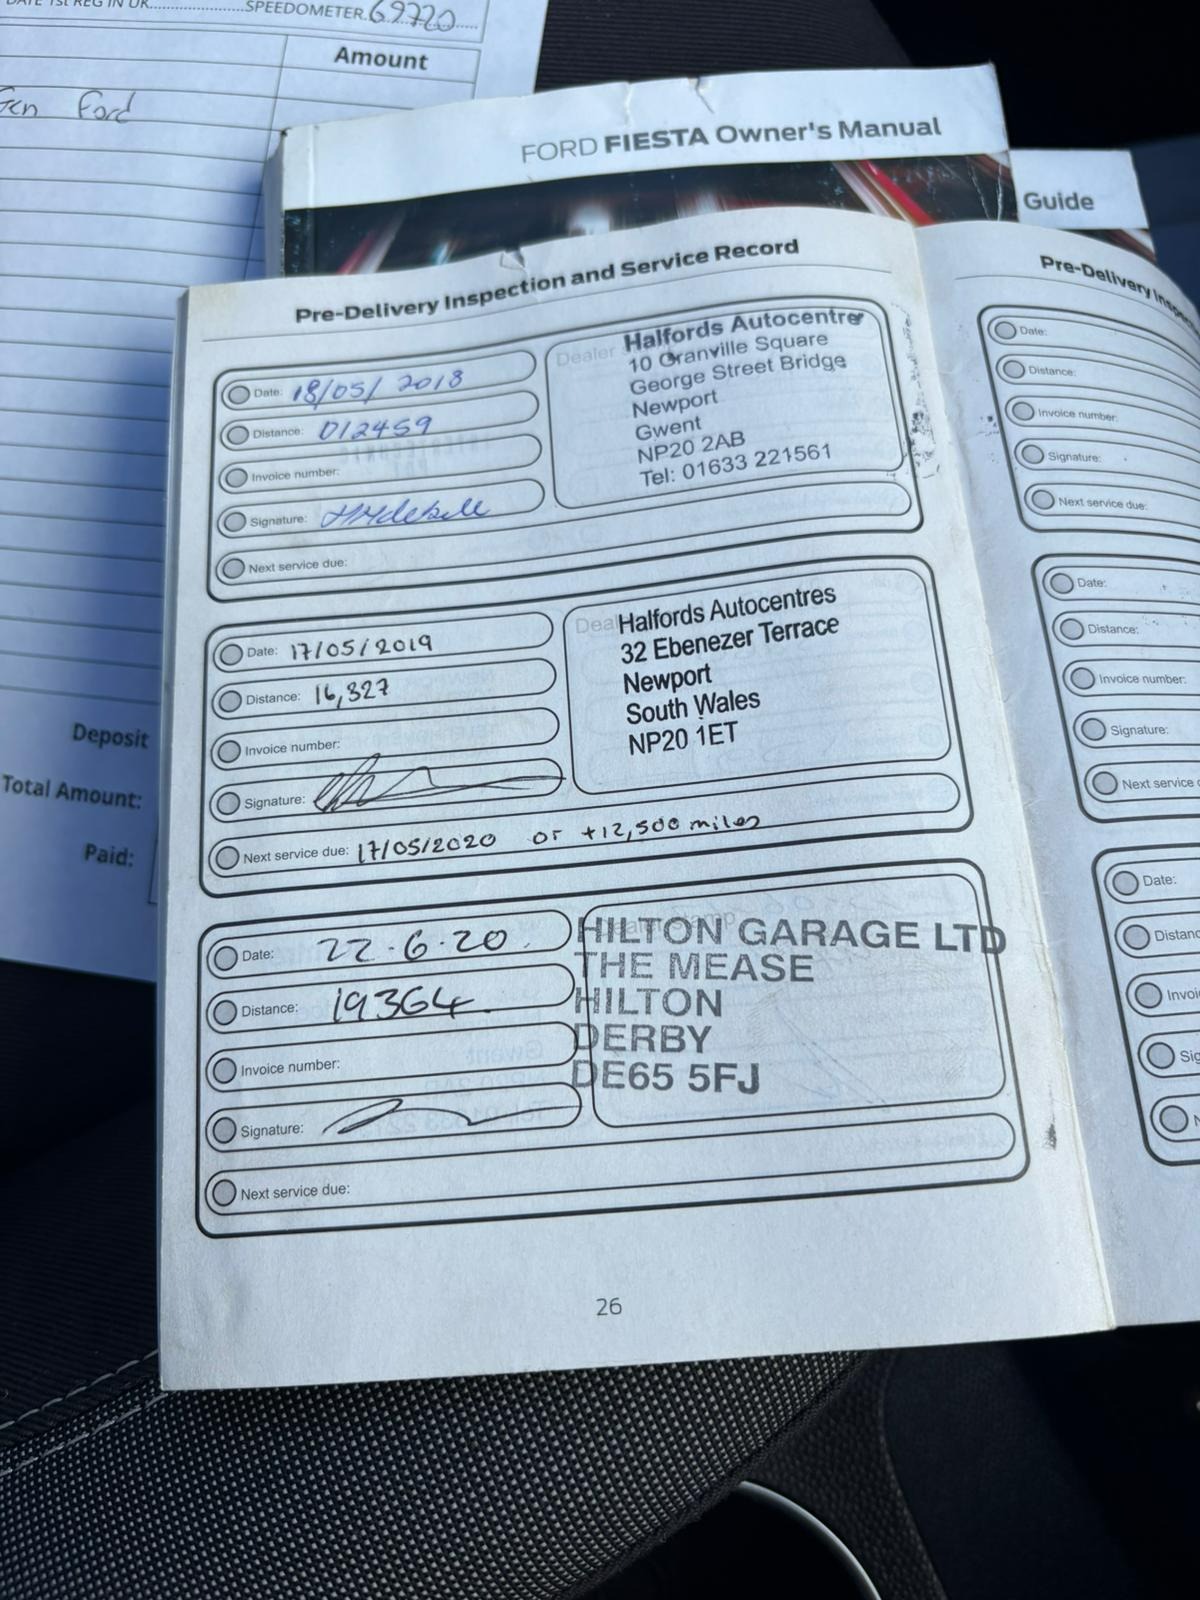 DATE 1st REG IN UK.......................SPEEDOMETER 69720
Amount
Ford
FORD FIESTA Owner's Manual
Guide
Deposit
Total Amount:
Paid:
Pre-Delivery Inspection and Service Record
Date: 18/05/2018
Distance: 012459
Invoice number:
Signature:
Next service due:
Dealer
Halfords Autocentre
10 Granville Square
George Street Bridge
Newport
Gwent
NP20 2AB
Tel: 01633 221561
Date: 17/05/2019
Distance: 16,327
Invoice number:
Signature:
Next service due: 17/05/2020 or +12,500 miles
Halfords Autocentres
32 Ebenezer Terrace
Newport
South Wales
NP20 1ET
Date: 22.6.20.
Distance: 19364
Invoice number:
Signature:
Next service due:
Dealer stamp
HILTON GARAGE LTD
THE MEASE
HILTON
DERBY
DE65 5FJ
26
Pre-Delivery
Date:
Distance:
Invoice number:
Signature:
Next service due:
Date:
Distance:
Invoice number:
Signature:
Next service
Date: